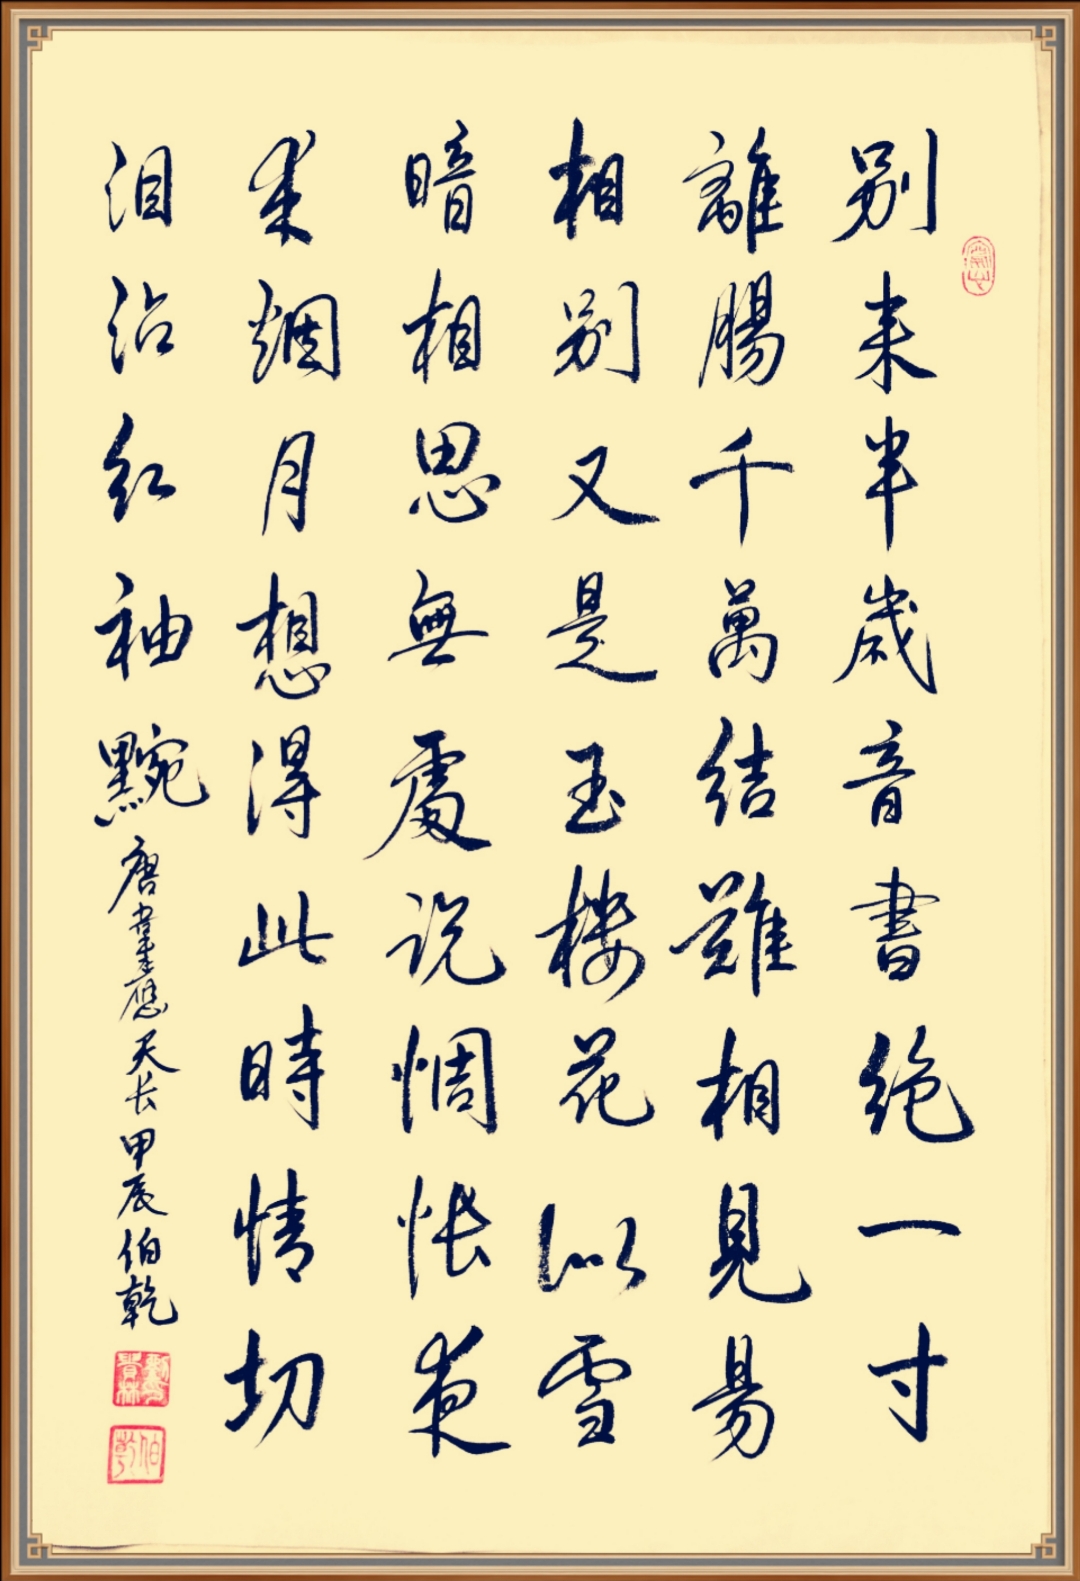 別来半歲音書絕一寸
離腸千萬結難相見易
相别又是玉樓花似雪
暗相思無處說惆悵夜
来烟月想得此時情切
泪沾红袖黦
唐韋莊應天长甲辰伯乾
伯乾